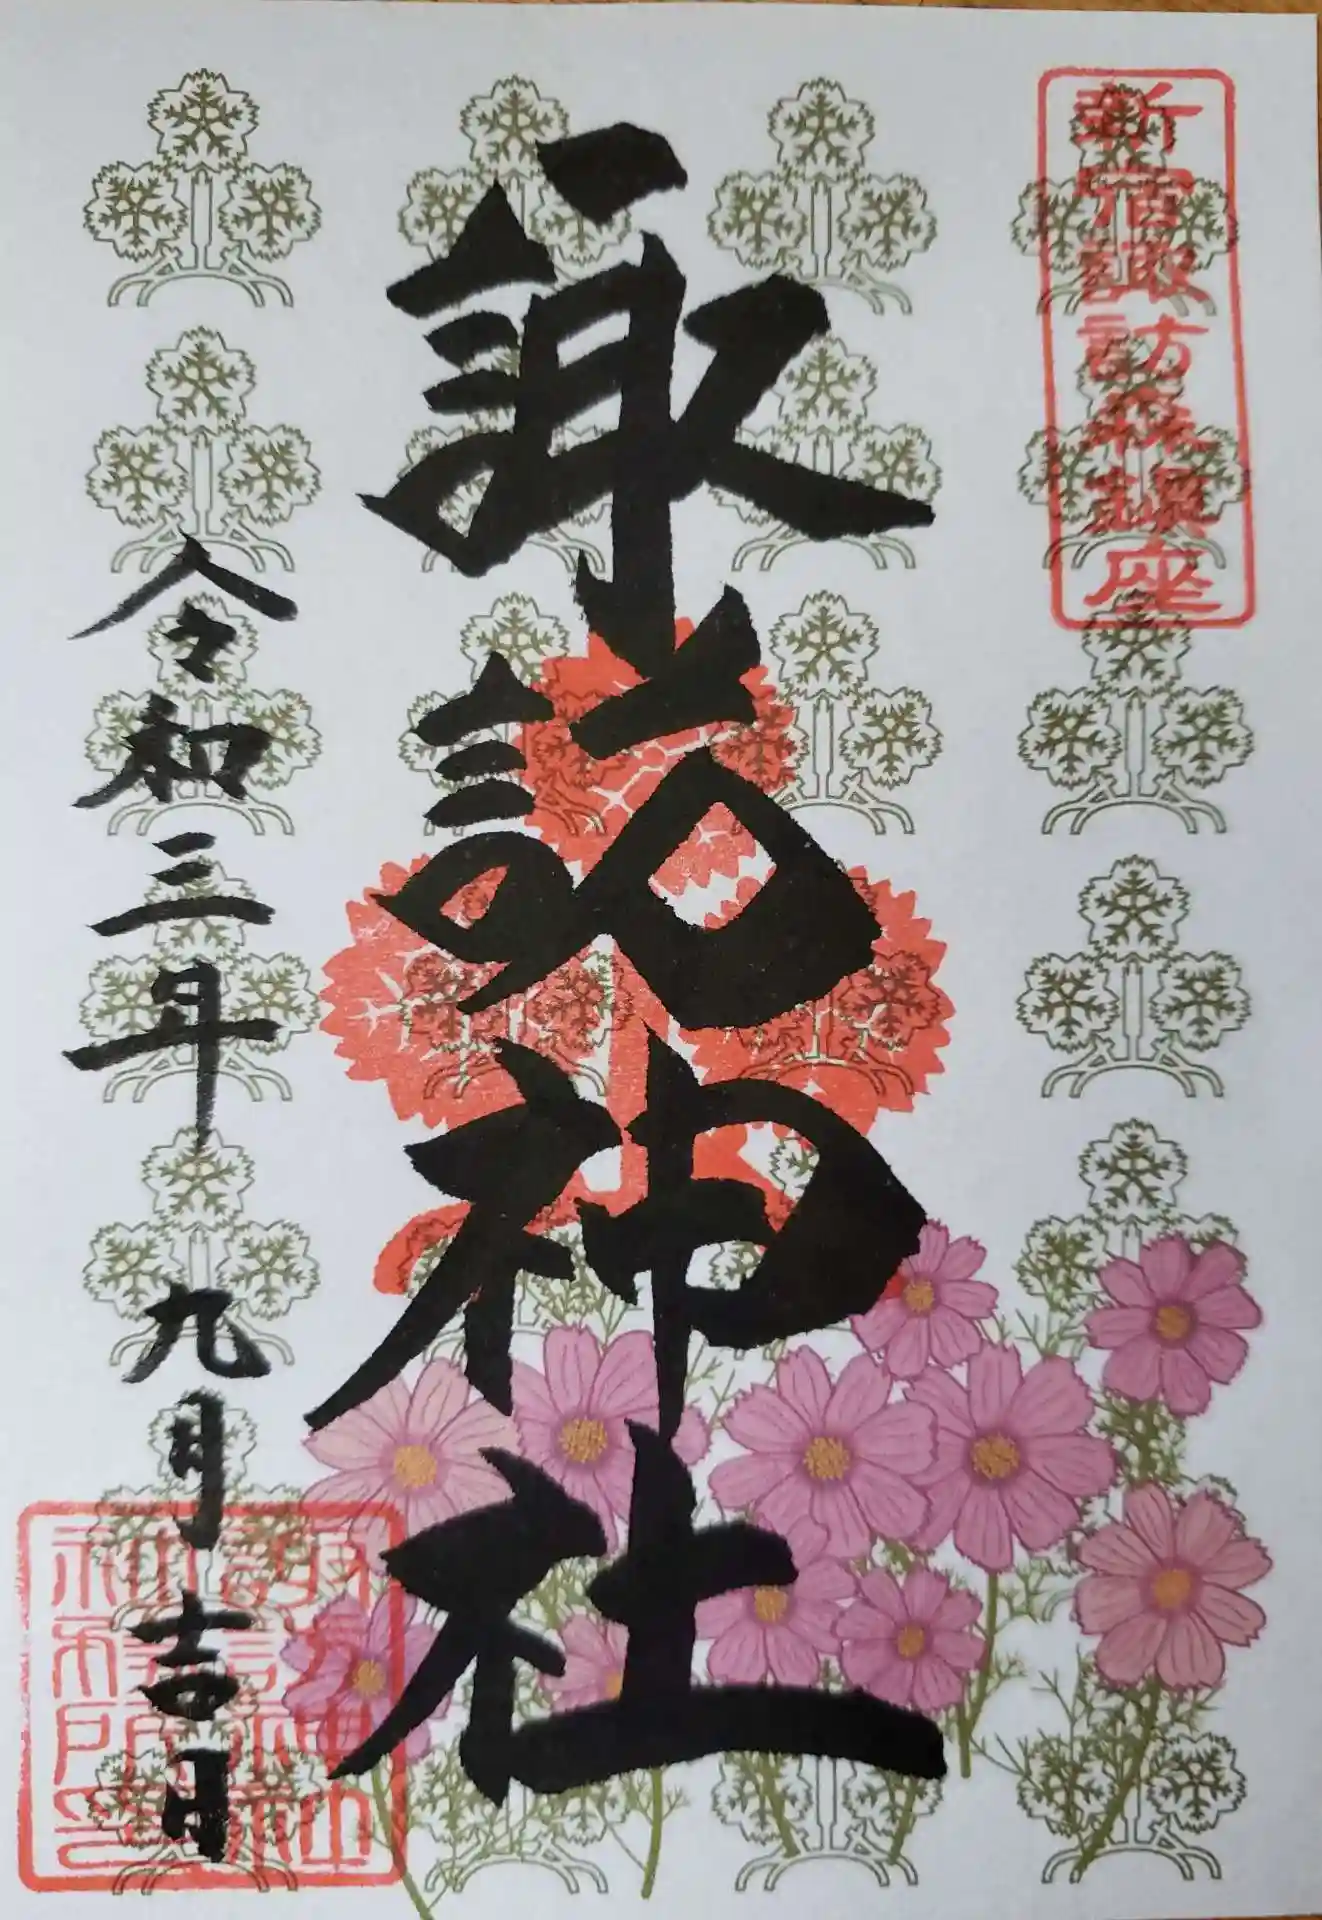 新宿諏訪森鎮座
諏訪神社
令和三年九月吉日
諏訪神社
神符所印